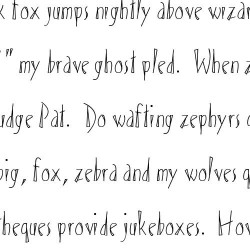 fox jumps nightly above wizar
" my brave ghost pled. When z
udge Pat. Do wafting zephyrs
pig, fox, zebra and my wolves q
theques provide jukeboxes. How